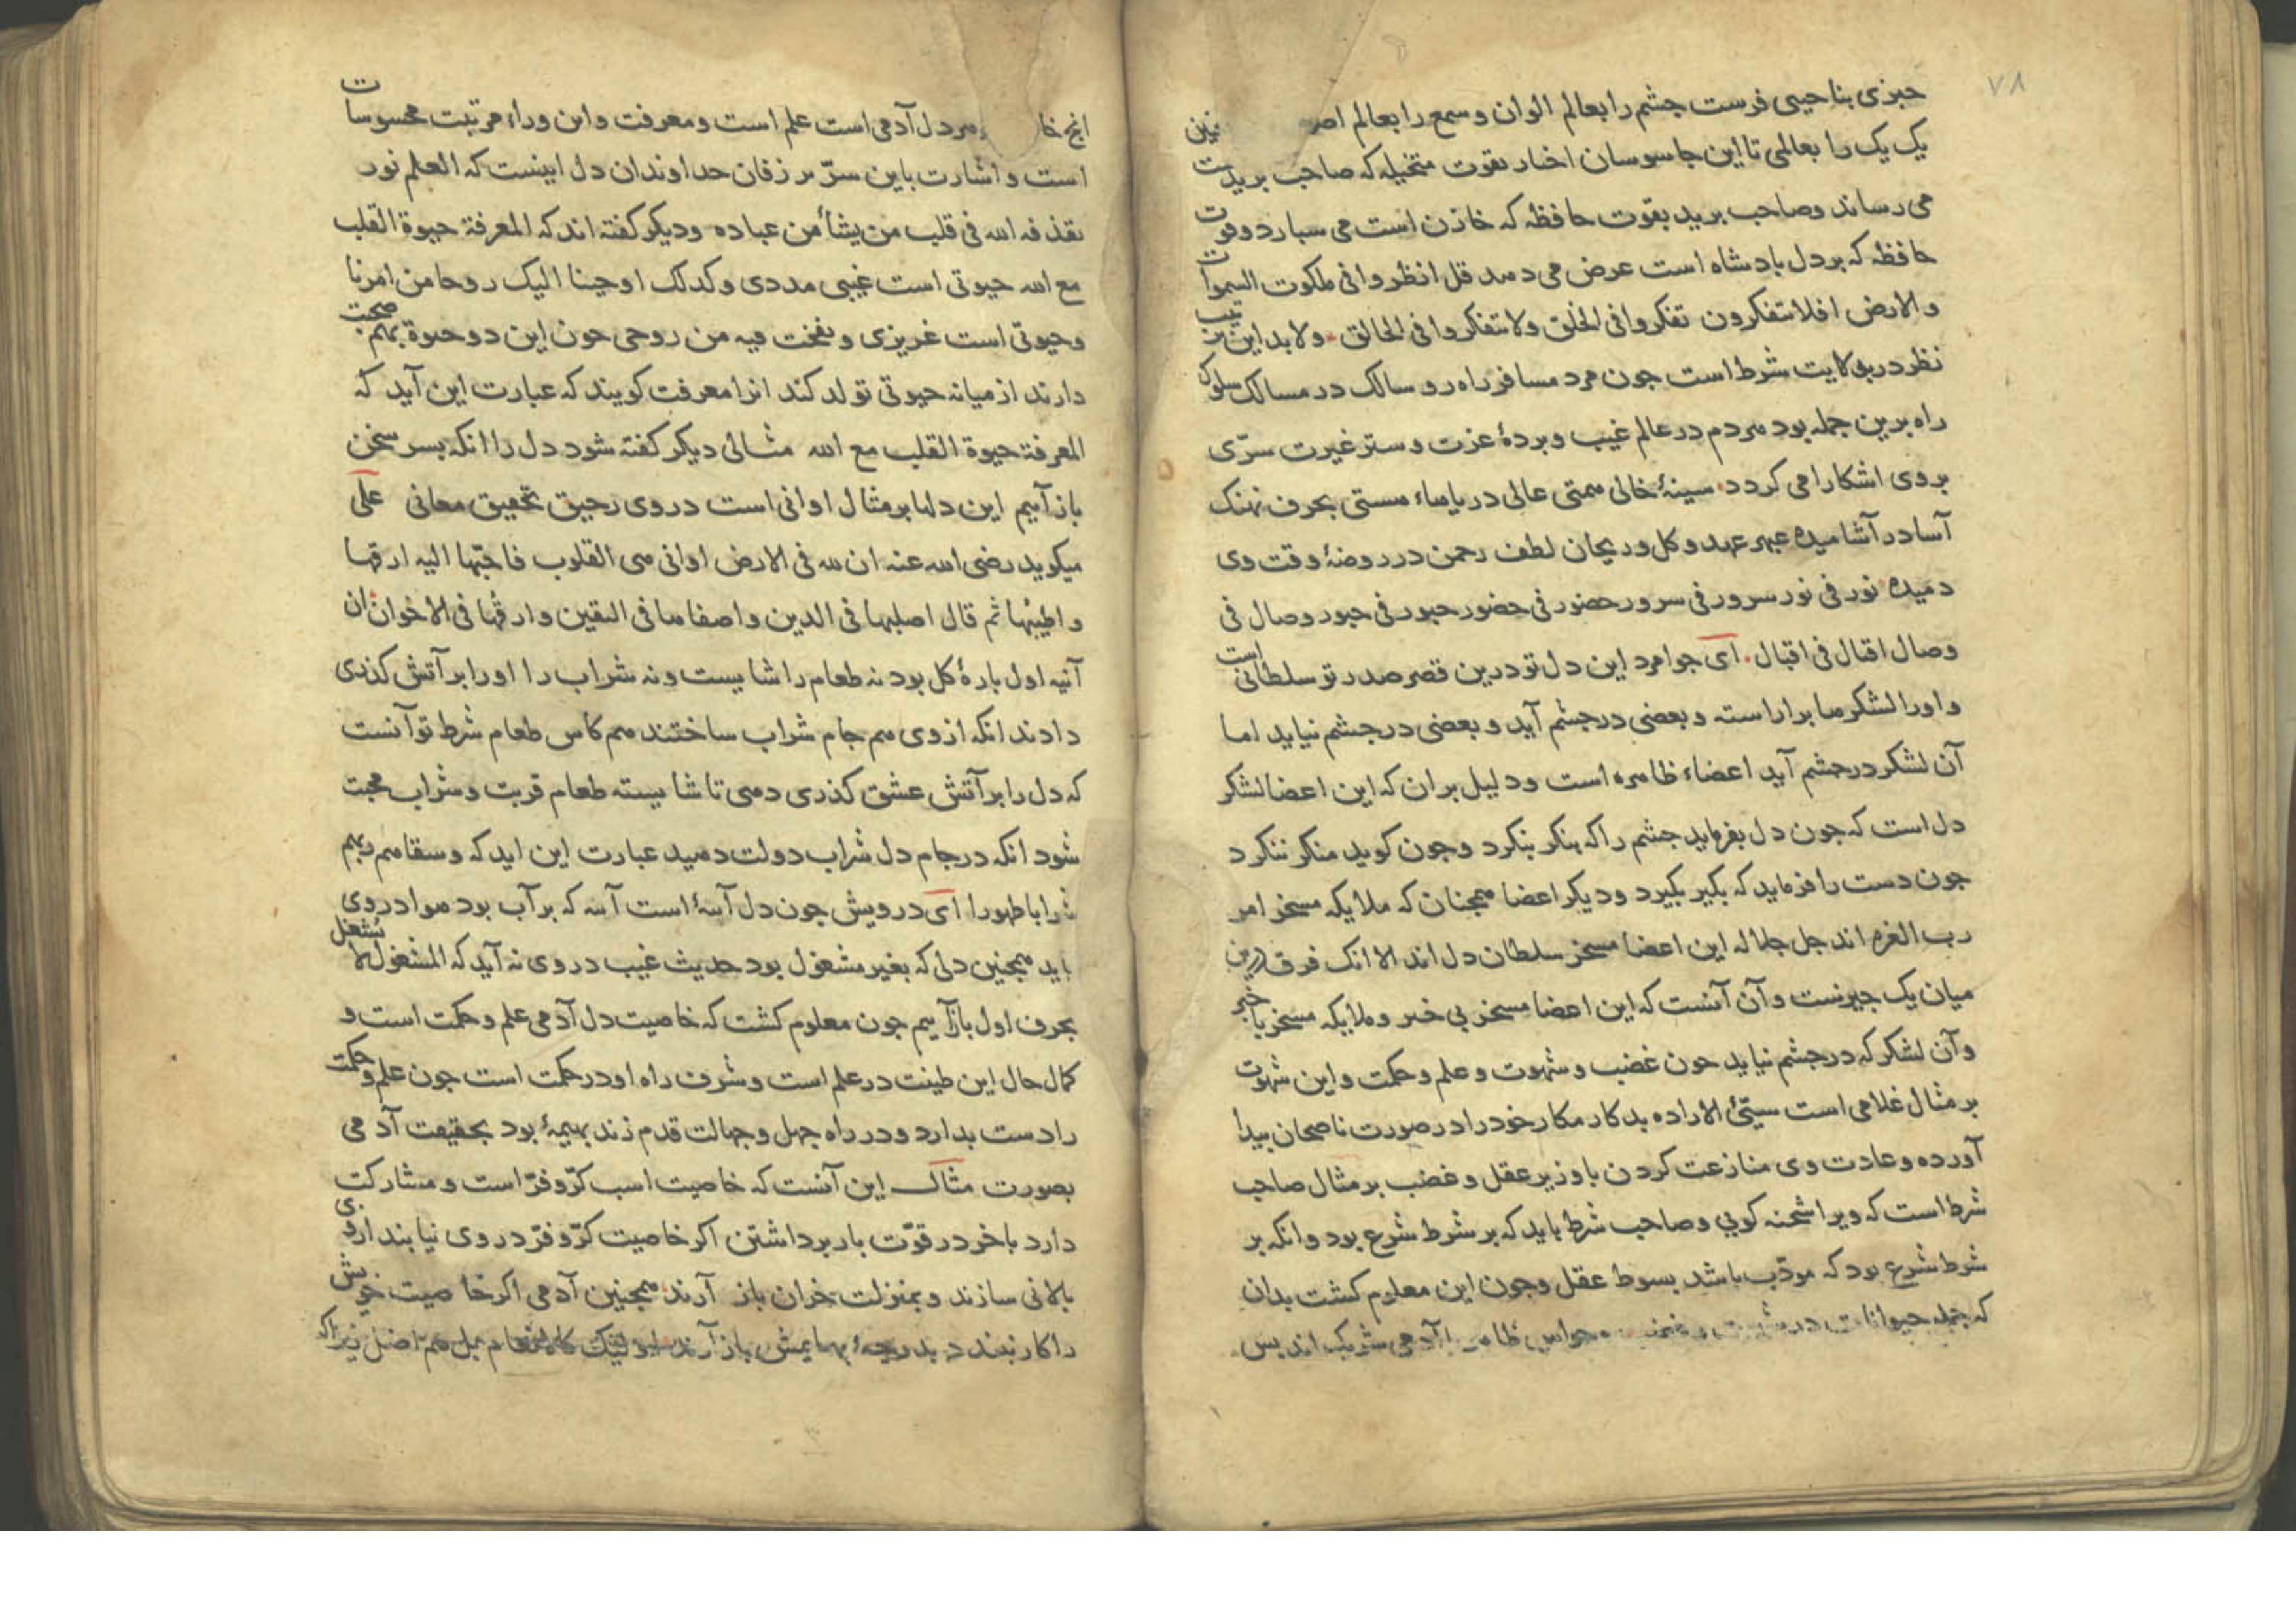 ۷۸
خبری بناحیی فرست چشم را بعالم الوان و سمع را بعالم
یک یک را بعالمی تا این جاسوسان اخبار بقوت متخیله که صاحب بریدست
می رساند وصاحب برید بقوت حافظه که خازن است می سبارد وقوت
حافظه که بر دل بادشاه است عرض می دهد قل انظروا فی ملکوت السموات
والارض افلا تتفکرون تفکروا فی الخلق ولا تتفکروا فی الخالق ولابد این
نظر در ولایت شرط است جون مرد مسافر راه رو سالک در مسالک سلوک
راه برین جمله بود هر دم در عالم غیب و بردهٔ عزت و ستر غیرت سرّی
بر وی اشکارا می کردد سینهٔ خالی همتی عالی دریاهاء هستی بحرف نهنک
آسا در آشامیده عبهر عهد و کل و ریحان لطف رحمن در روضهٔ وقت وی
دمیده نور فی نور سرور فی سرور حضور فی حضور حبور فی حبور وصال فی
وصال اقبال فی اقبال ای جوامرد این دل تو درین قصر صدر تو سلطانی است
و اورا لشکرها برا راسته و بعضی درجشم آید و بعضی درجشم نیاید اما
آن لشکر درجشم آید اعضاء ظاهره است ودلیل بران که این اعضا لشکر
دل است که جون دل بفرماید جشم را که بنکر بنکرد وجون کوید منکر ننکرد
جون دست را فرماید که بکیر بکیرد ودیکر اعضا همجنان که ملایکه مسخر امر
رب العزه اند جل جلاله این اعضا مسخر سلطان دل اند الا انک فرق درین
میان یک جیزست وآن آنست که این اعضا مسخر بی خبر و ملایکه مسخر با خبر
وآن لشکر که درجشم نیاید جون غضب و شهوت و علم و حکمت و این شهوت
بر مثال غلامی است سیّئ الاراده بدکار مکار خود را در صورت ناصحان بیدا
آورده و عادت وی منازعت کردن با وزیر عقل و غضب بر مثال صاحب
شرط است که ویرا شحنه کویی و صاحب شرط باید که بر شرط شرع بود وانکه بر
شرط شرع بود که مودّب باشد بسوط عقل وجون این معلوم کشت بدان
که جمله حیوانات در حواس ظاهر با آدمی شریک اند بس
دل آدمی است علم است و معرفت واین وراء مرتبت محسوسات
است و اشارت باین سرّ بر زفان خداوندان دل اینست که العلم نور
یقذفه الله فی قلب من یشأ من عباده ودیکر کفته اند که المعرفة حیوة القلب
مع الله حیوتی است غیبی مددی وکذلک اوحینا الیک روحا من امرنا
وحیوتی است غریزی ونفخت فیه من روحی جون این دو حیوة بهم صحبت
دارند از میانه حیوتی تولد کند انرا معرفت کویند که عبارت این آید که
المعرفة حیوة القلب مع الله مثالی دیکر کفته شود دل را انکه بسر سخن
باز آییم این دلها بر مثال اوانی است در وی رحیق تحقیق معانی علی
میکوید رضی الله عنه ان لله فی الارض اوانی هی القلوب فاحبّها الیه ارقها
و اطیبها ثم قال اصلبها فی الدین واصفاها فی الیقین وارقّها فی الاخوان ان
آنیه اول بارهٔ کل بود نه طعام را شایست ونه شراب را اورا بر آتش کذری
دادند انکه از وی هم جام شراب ساختند هم کاس طعام شرط تو آنست
که دل را بر آتش عشق کذری دهی تا شایسته طعام قربت و شراب محبت
شود انکه در جام دل شراب دولت دهید عبارت این اید که وسقاهم ربهم
شرابا طهورا ای درویش جون دل آنیهٔ است آنیه که بر آب بود هوا در وی
نیاید همجنین دلی که بغیر مشغول بود حدیث غیب در وی نه آید که المشغول لا یشغل
بحرف اول باز آییم جون معلوم کشت که خاصیت دل آدمی علم و حکمت است و
کمال حال این طینت در علم است و شرف راه او در حکمت است جون علم و حکمت
را دست بدارد و در راه جهل و جهالت قدم زند بهیمهٔ بود بحقیقت آدمی
بصورت مثال این آنست که خاصیت اسب کرّ و فرّ است و مشارکت
دارد با خر در قوّت بار برداشتن اکر خاصیت کرّ و فرّ در وی نیابند از وی
بالانی سازند و بمنزلت خران باز آرند همجنین آدمی اکر خاصیت خویش
را کار نبندد بدرجهٔ بهایمش باز آرند اولئک کالانعام بل هم اضل زیراکه